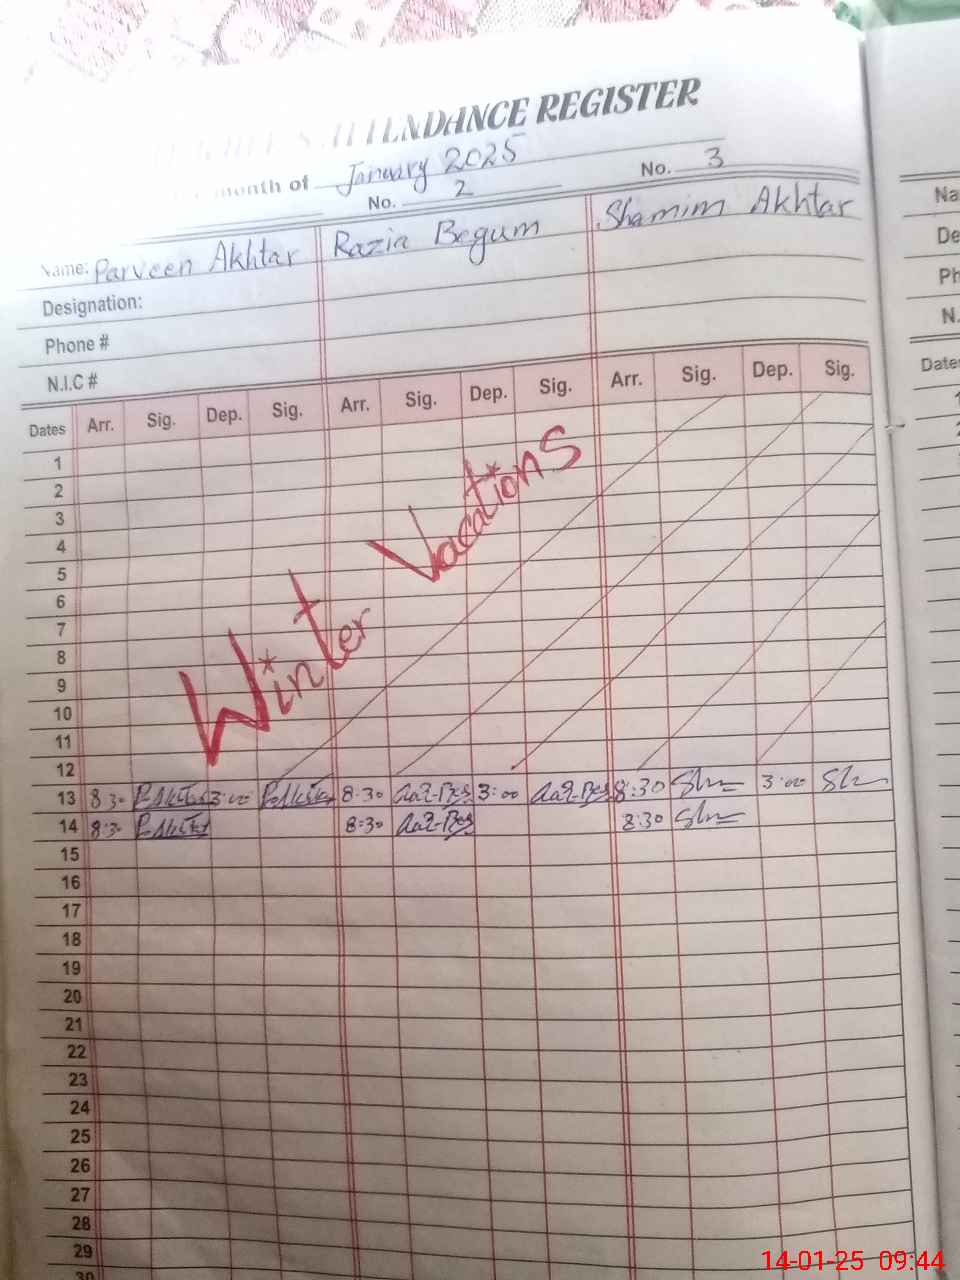 ATTENDANCE REGISTER
month of January 2025
No. 2 No. 3
Name: Parveen Akhtar Razia Begum Shamim Akhtar
Designation:
Phone #
N.I.C #
Dates Arr. Sig. Dep. Sig. Arr. Sig. Dep. Sig. Arr. Sig. Dep. Sig.
1
2
3
4
5
6
7
8
9
10
11
12
Winter Vacations
13 8:30 P.Akhtar 3:00 P.Akhtar 8:30 3:00 8:30 3:00
14 8:30 P.Akhtar 8:30 8:30
15
16
17
18
19
20
21
22
23
24
25
26
27
28
29
30
Dates
14-01-25 09:44